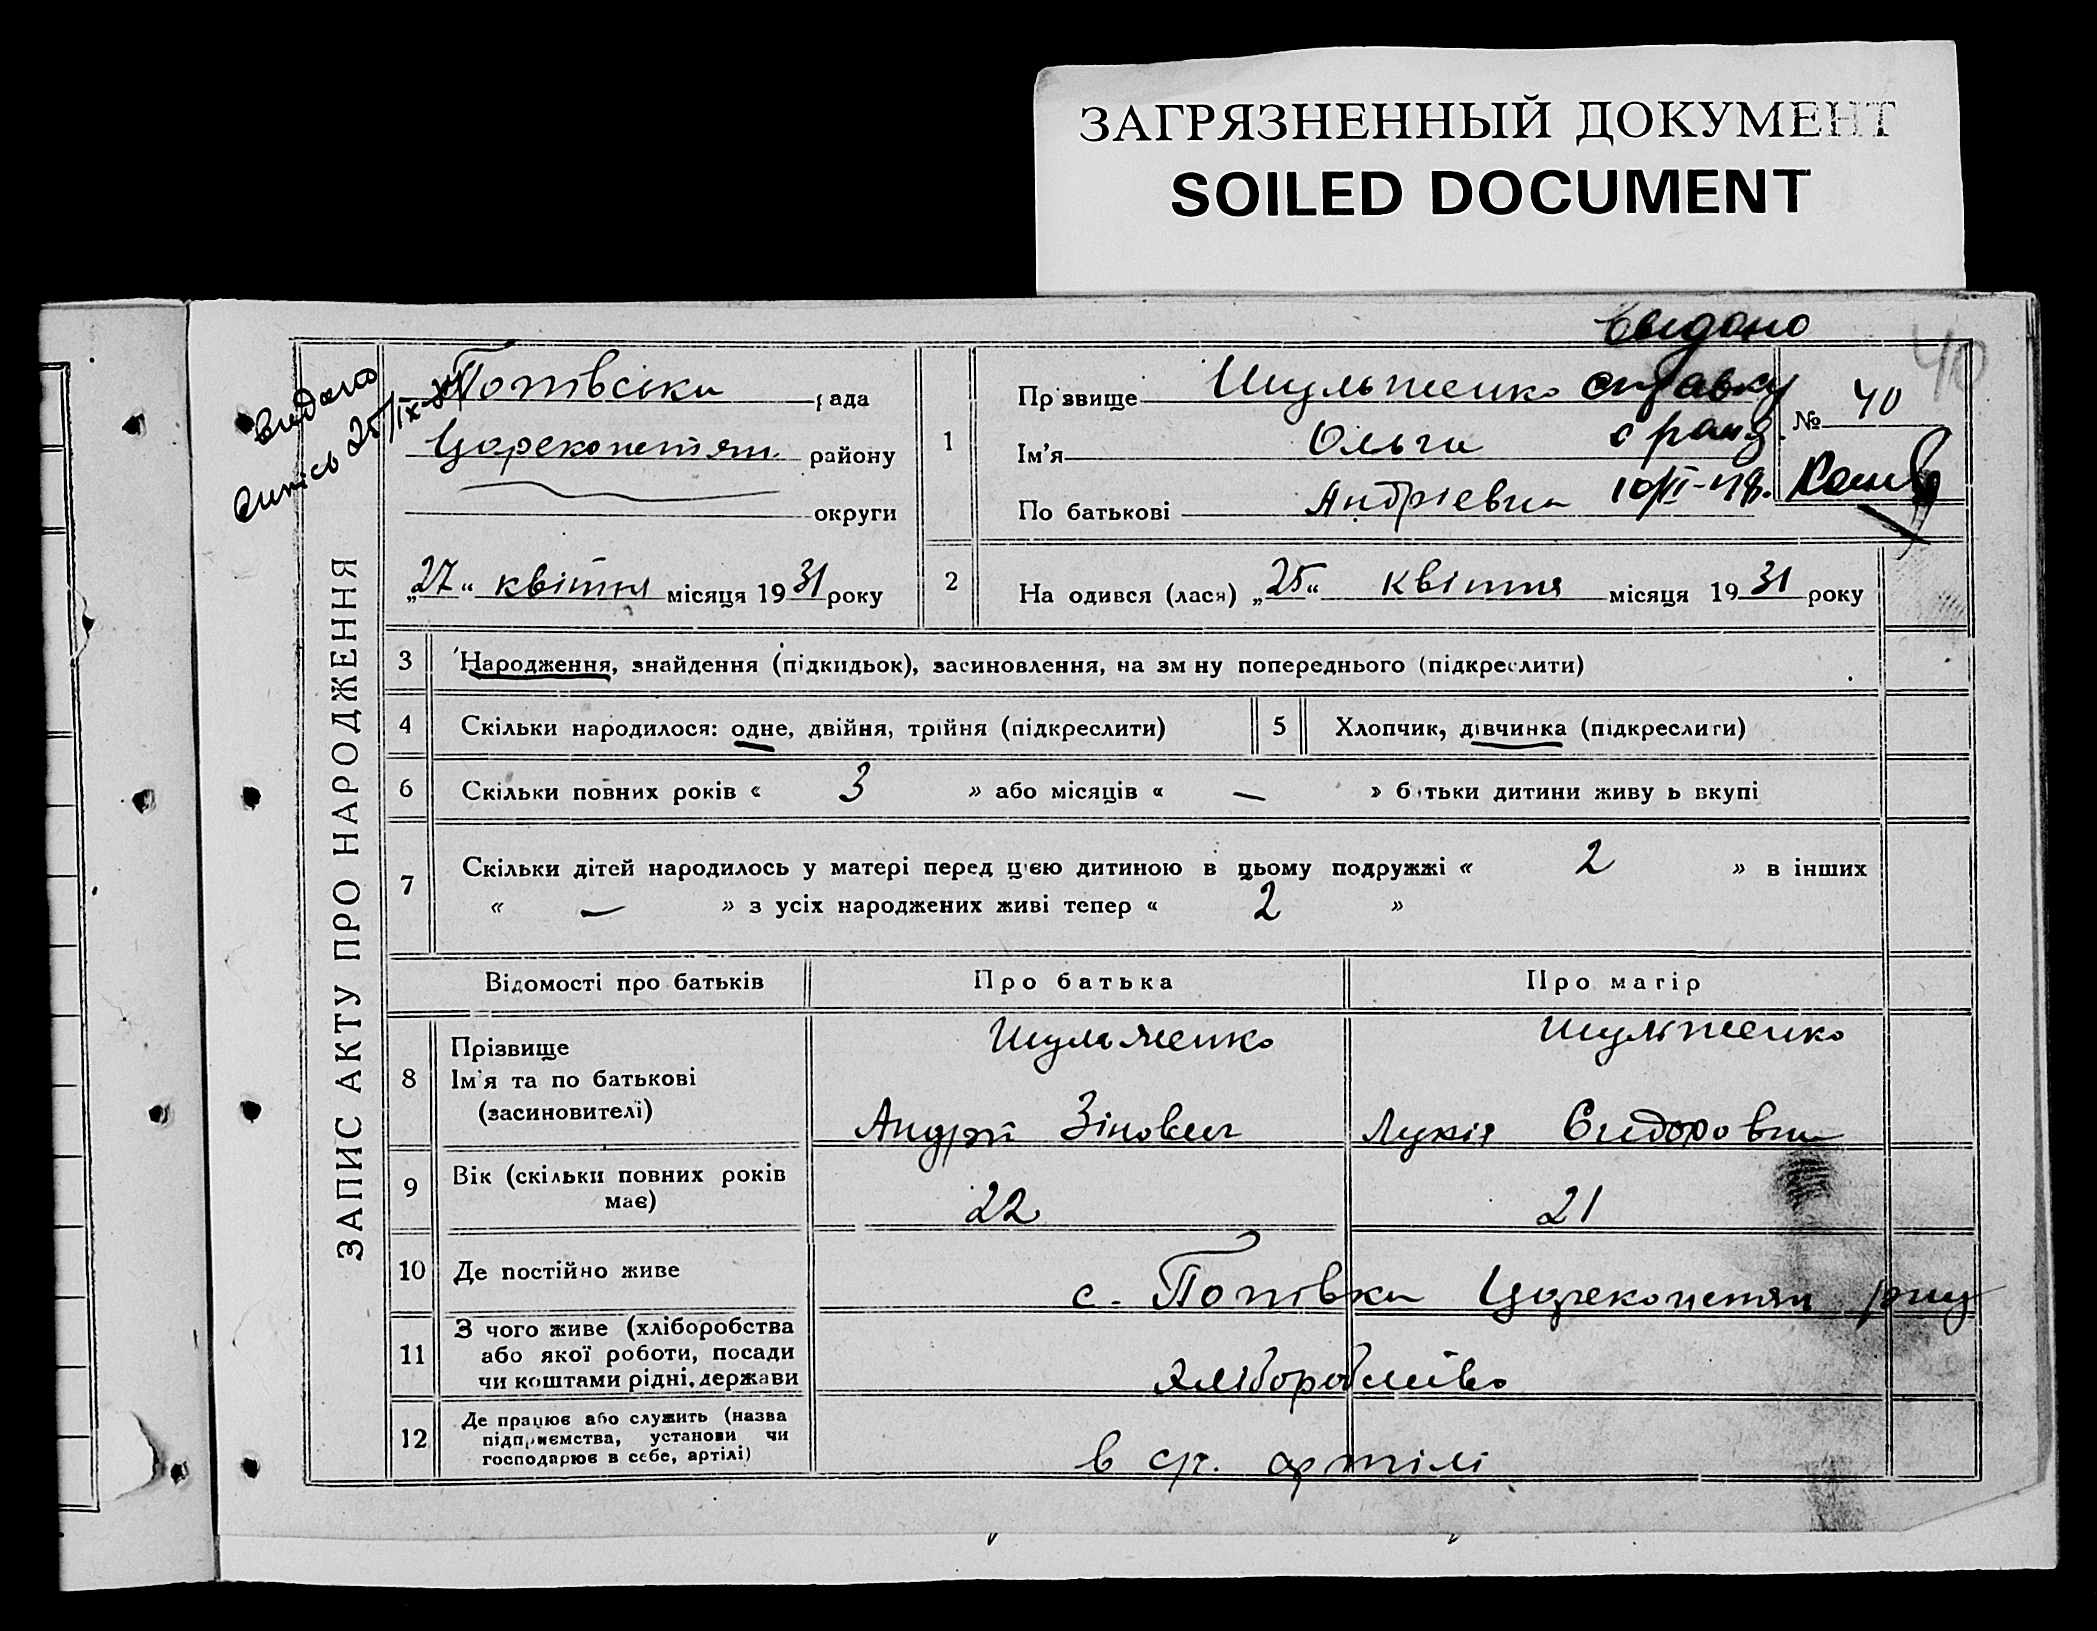 ЗАГРЯЗНЕННЫЙ ДОКУМЕНТ
SOILED DOCUMENT
видано
40
видано
випись 25/IX-
ЗАПИС АКТУ ПРО НАРОДЖЕННЯ
Попівська рада
Царекон­стян. району
округи
„27“ квітня місяця 1931 року
1
Прізвище Шульженко справку
Ім'я Ольга
По батькові Андріевна
№ 40
2
На одився (лася) „25“ квітня місяця 1931 року
3 Народження, знайдення (підкидьок), засиновлення, на зм ну попереднього (підкреслити)
4 Скільки народилося: одне, двійня, трійня (підкреслити) 5 Хлопчик, дівчинка (підкреслити)
6 Скільки повних років « 3 » або місяців « — » б тьки дитини живу ь вкупі
7 Скільки дітей народилось у матері перед цією дитиною в цьому подружжі « 2 » в інших
« — » з усіх народжених живі тепер « 2 »
Відомості про батьків Про батька Про матір
8 Прізвище Шульженко Шульженко
Ім'я та по батькові
(засиновителі) Андрій Зінович Лукія Сидоровна
9 Вік (скільки повних років
має) 22 21
10 Де постійно живе с. Попівка Цареконстян р-ну
11 З чого живе (хліборобства
або якої роботи, посади
чи коштами рідні, держави хліборобство
12 Де працює або служить (назва
підприємства, установи чи
господарює в себе, артілі) в с.г. артілі